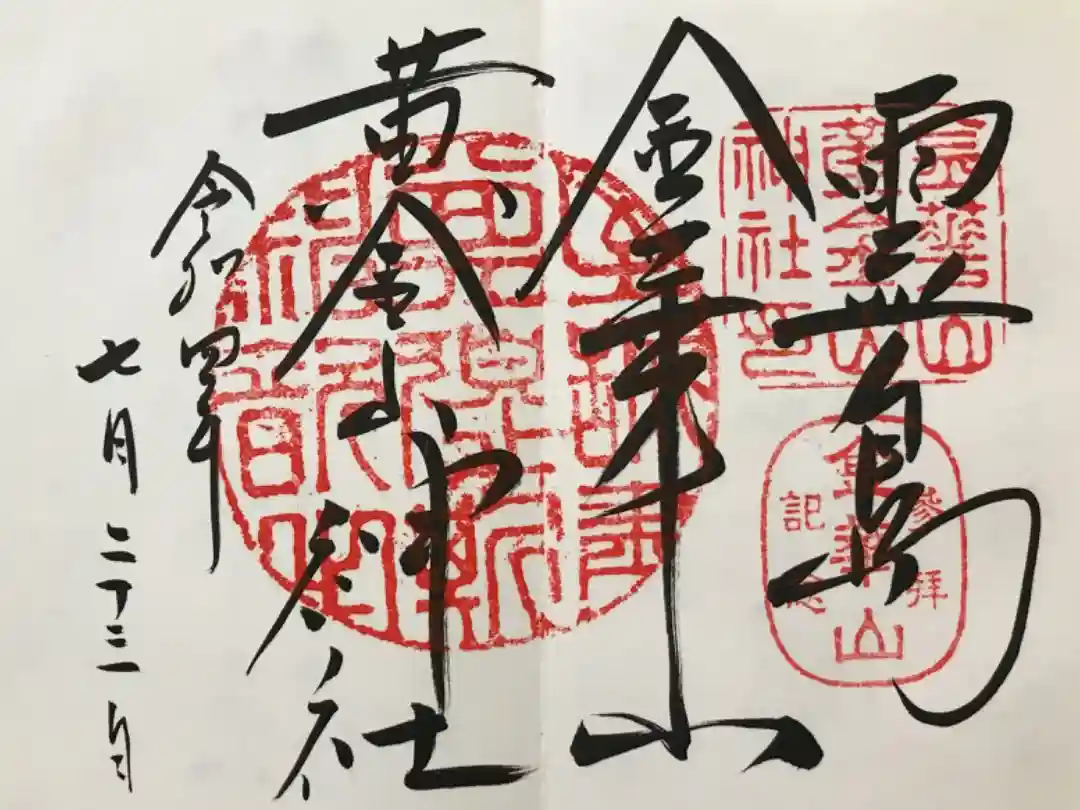 霊島
金華山
黄金山神社
令和四年
七月二十三日
金華山
黄金山
神社印
参拝
金華山
記念